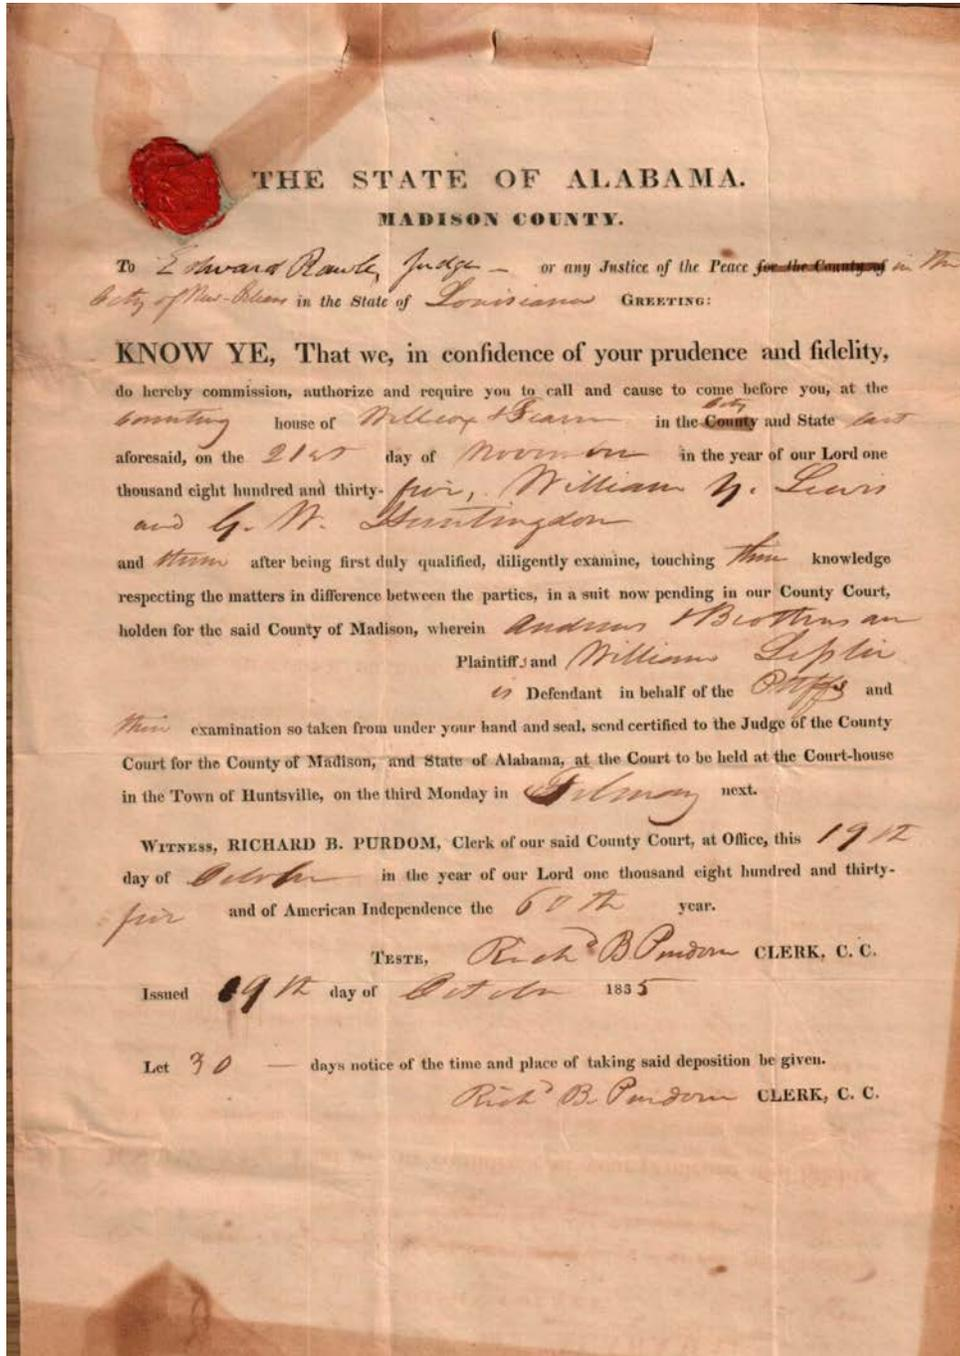 THE STATE OF ALABAMA.
MADISON COUNTY.
To Edward Rawle, Judge – or any Justice of the Peace for the County of in the
City of New-Orleans in the State of Louisiana GREETING:
KNOW YE, That we, in confidence of your prudence and fidelity,
do hereby commission, authorize and require you to call and cause to come before you, at the
counting house of Willcox & Fearn in the County City and State last
aforesaid, on the 21st day of November in the year of our Lord one
thousand eight hundred and thirty-five, William Y. Lewis
and G. W. Huntingdon
and them after being first duly qualified, diligently examine, touching their knowledge
respecting the matters in difference between the parties, in a suit now pending in our County Court,
holden for the said County of Madison, wherein Andrews & Brothers are
Plaintiffs and William Leslie
is Defendant in behalf of the Ptffs and
their examination so taken from under your hand and seal, send certified to the Judge of the County
Court for the County of Madison, and State of Alabama, at the Court to be held at the Court-house
in the Town of Huntsville, on the third Monday in February next.
WITNESS, RICHARD B. PURDOM, Clerk of our said County Court, at Office, this 19th
day of October in the year of our Lord one thousand eight hundred and thirty-
five and of American Independence the 60th year.
TESTE, Richd B Purdom CLERK, C. C.
Issued 19th day of October 1835
Let 30 — days notice of the time and place of taking said deposition be given.
Richd B. Purdom CLERK, C. C.